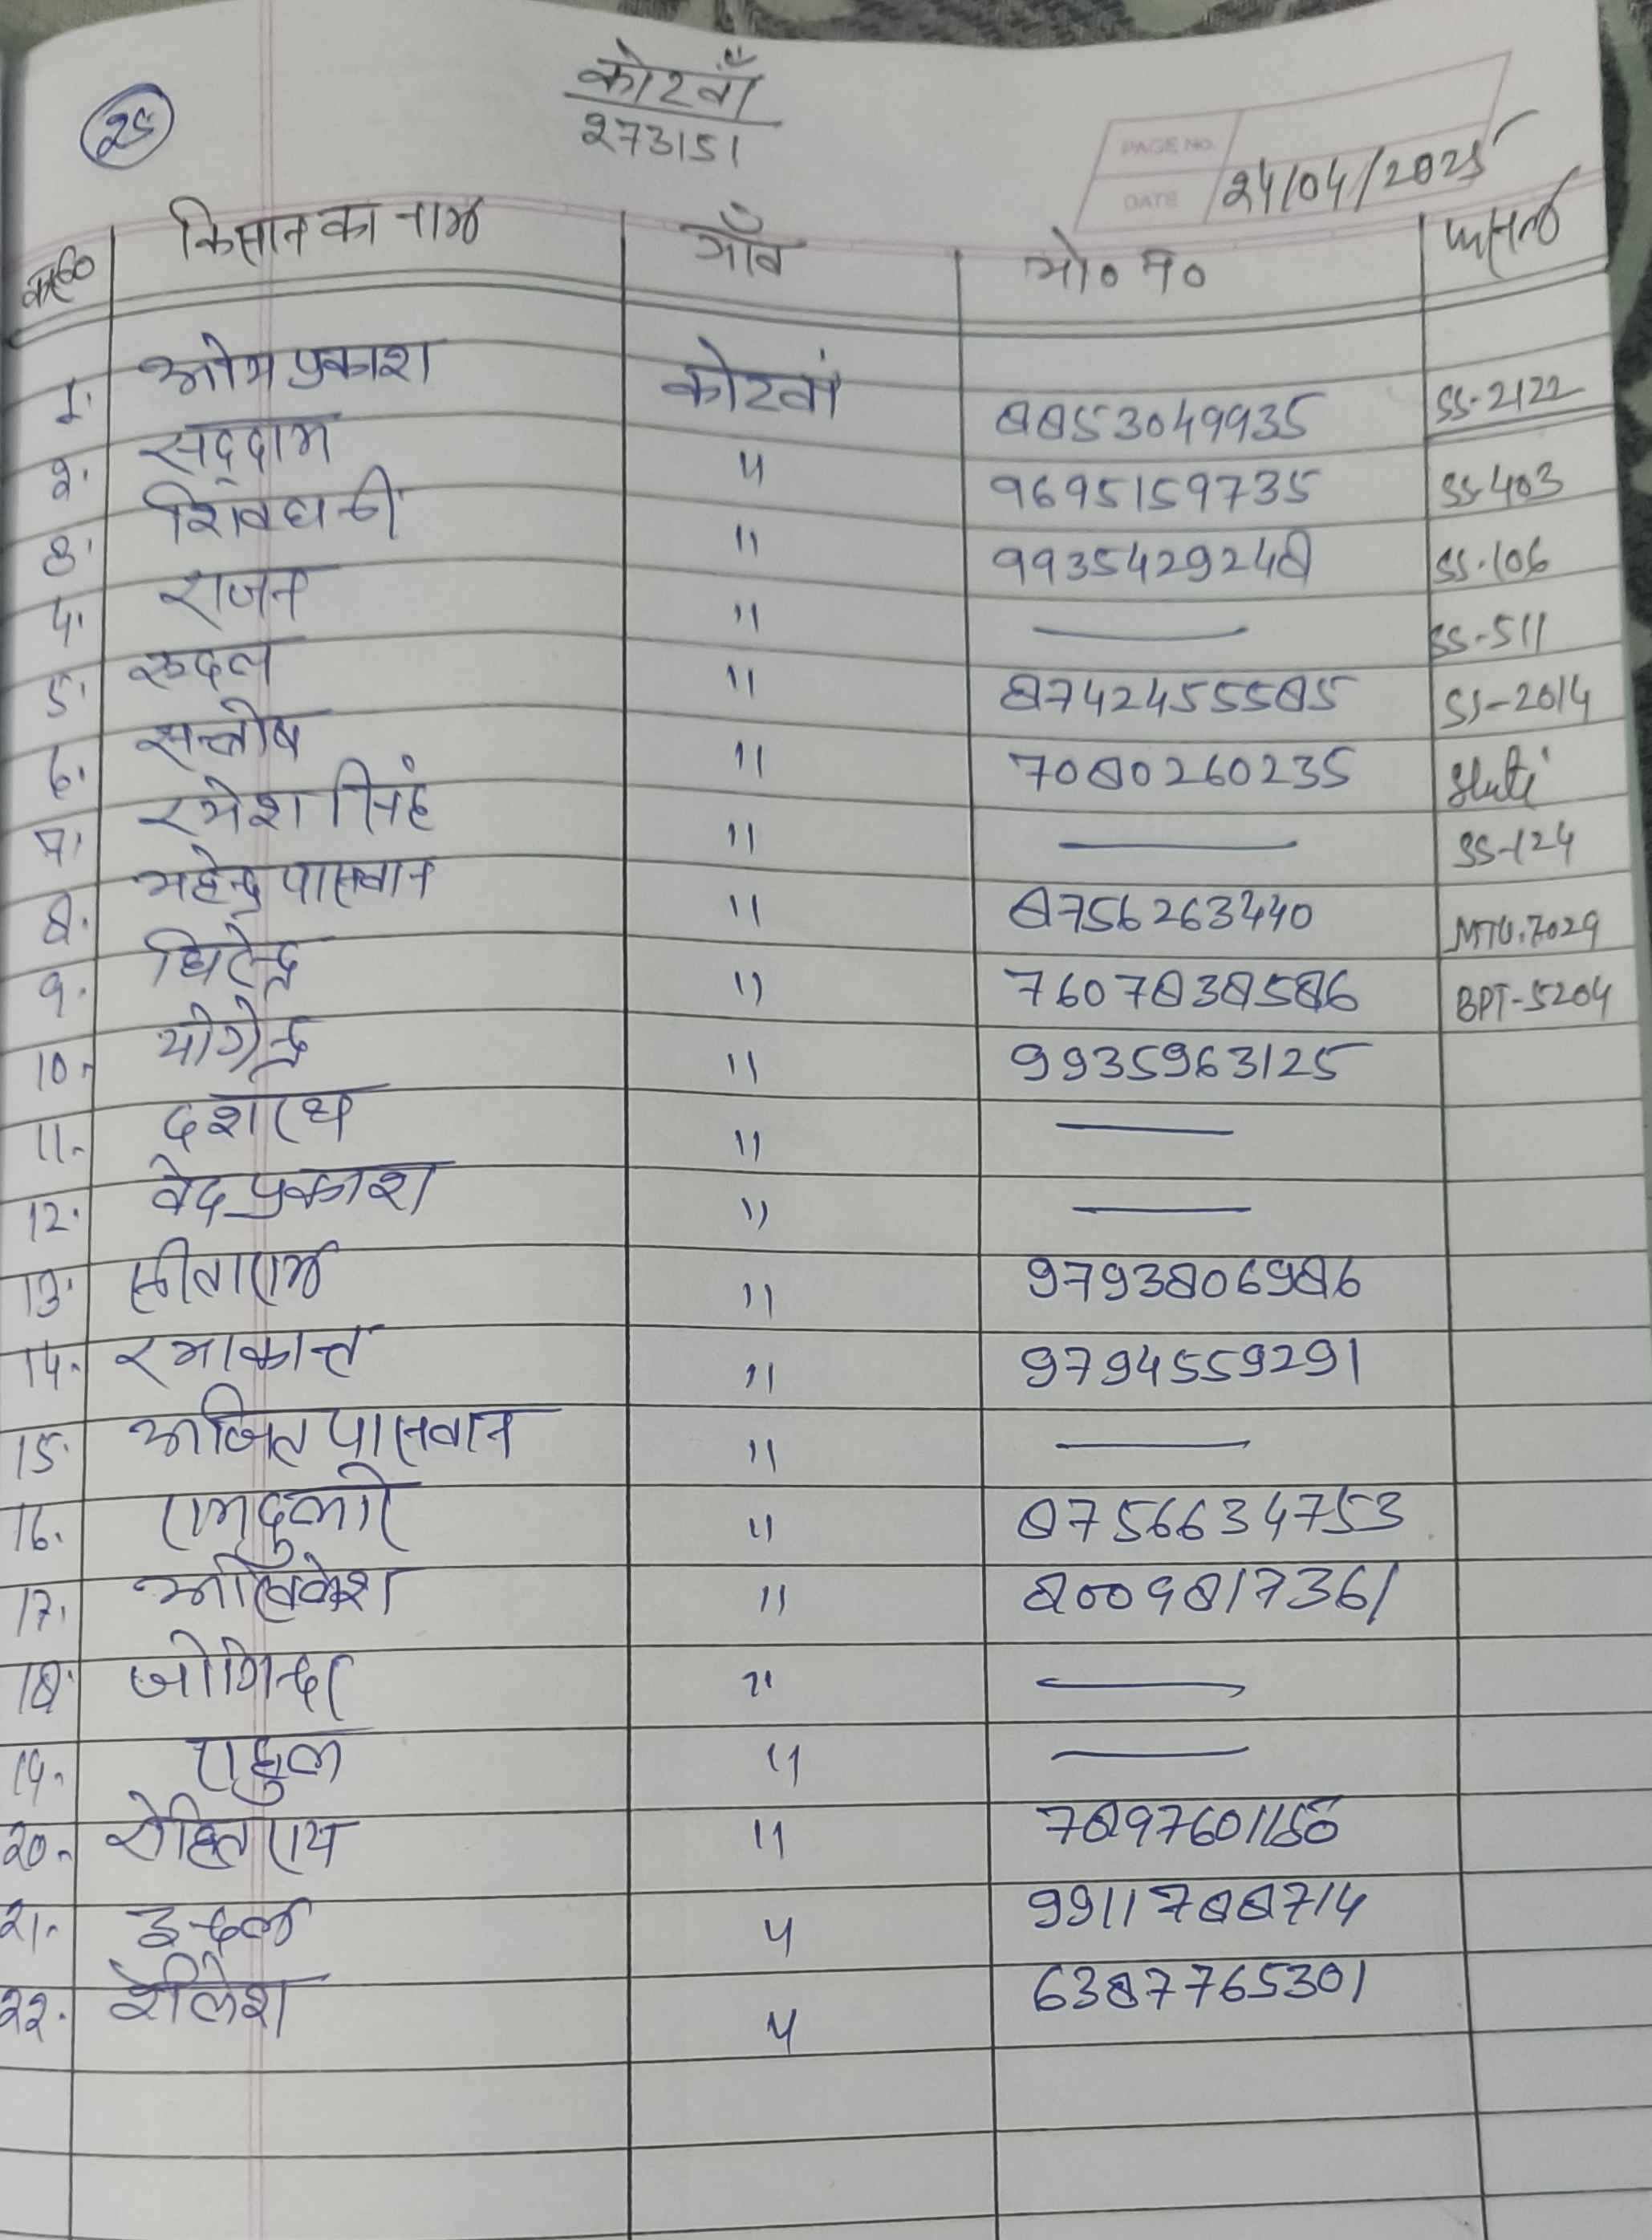 25
कोरवाँ
273151
PAGE NO.
DATE 24/04/2025
क्र०सं० किसान का नाम गाँव मो० न० फसल
1. ओम प्रकाश कोरवां 8853049935 SS-2122
2. सद्दाम " 9695159735 SS-403
3. शिवधनी " 9935429248 SS-106
4. राजन " — SS-511
5. रूदल " 8742455585 SS-2014
6. सन्तोष " 7080260235
7. रमेश सिंह " — SS-124
8. महेन्द्र पासवान " 8756263440 MTU.7029
9. धिरेन्द्र " 7607838586 BPT-5204
10. योगेन्द्र " 9935963125
11. दशरथ " —
12. वेद प्रकाश " —
13. सीताराम " 9793806986
14. रमाकान्त " 9794559291
15. अजित पासवान " —
16. रामदुलारे " 8756634753
17. अखिलेश " 8009817361
18. जोगिन्दर " —
19. राहुल " —
20. रोहित राय "
21. इन्दल " 9911788714
22. शैलेश " 6387765301